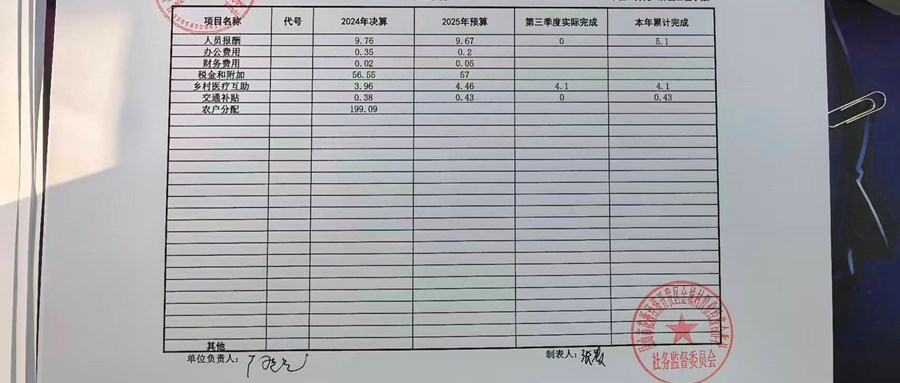 项目名称 代号 2024年决算 2025年预算 第三季度实际完成 本年累计完成
人员报酬 9.76 9.67 0 5.1
办公费用 0.35 0.2
财务费用 0.02 0.05
税金和附加 56.55 57
乡村医疗互助 3.96 4.46 4.1 4.1
交通补贴 0.38 0.43 0 0.43
农户分配 199.09
其他
单位负责人: 制表人:
社务监督委员会